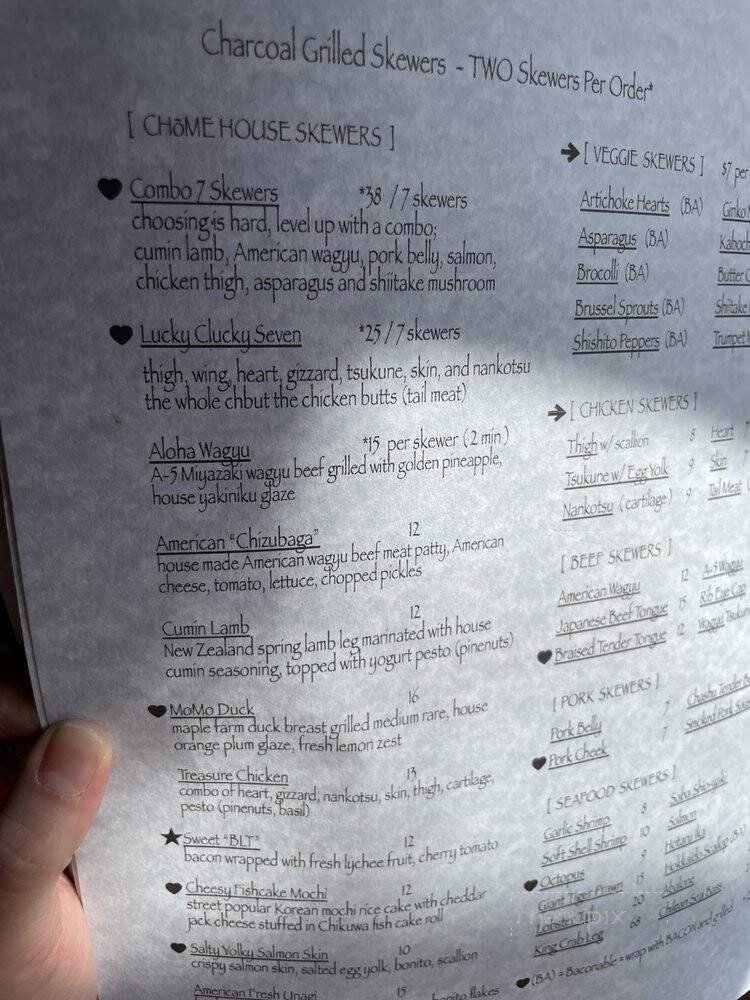 Charcoal Grilled Skewers - TWO Skewers Per Order*
[ CHōME HOUSE SKEWERS ]
Combo 7 Skewers *38 / 7 skewers
choosing is hard, level up with a combo;
cumin lamb, American wagyu, pork belly, salmon,
chicken thigh, asparagus and shiitake mushroom
Lucky Clucky Seven *25 / 7 skewers
thigh, wing, heart, gizzard, tsukune, skin, and nankotsu
the whole chbut the chicken butts (tail meat)
Aloha Wagyu *15 per skewer ( 2 min )
A-5 Miyazaki wagyu beef grilled with golden pineapple,
house yakiniku glaze
American "Chizubaga" 12
house made American wagyu beef meat patty, American
cheese, tomato, lettuce, chopped pickles
Cumin Lamb 12
New Zealand spring lamb leg marinated with house
cumin seasoning, topped with yogurt pesto (pinenuts)
MoMo Duck 16
maple farm duck breast grilled medium rare, house
orange plum glaze, fresh lemon zest
Treasure Chicken 13
combo of heart, gizzard, nankotsu, skin, thigh, cartilage,
pesto (pinenuts, basil)
Sweet "BLT" 12
bacon wrapped with fresh lychee fruit, cherry tomato
Cheesy Fishcake Mochi 12
street popular Korean mochi rice cake with cheddar
jack cheese stuffed in Chikuwa fish cake roll
Salty Yolky Salmon Skin 10
crispy salmon skin, salted egg yolk, bonito, scallion
American Fresh Unagi 15
bonito flakes
[ VEGGIE SKEWERS ] $7 per
Artichoke Hearts (BA) Ginko
Asparagus (BA) Kaboch
Brocolli (BA) Butter
Brussel Sprouts (BA) Shiitake
Shishito Peppers (BA) Trumpet
[ CHICKEN SKEWERS ]
Thigh w/ scallion 8 Heart 7
Tsukune w/ Egg Yolk 9 Skin 7
Nankotsu ( cartilage ) 9 Tail Meat
[ BEEF SKEWERS ]
American Wagyu 12 A-5 Wagyu
Japanese Beef Tongue 15 Rib Eye Cap
Braised Tender Tongue 12 Wagyu Tsuku
[ PORK SKEWERS ]
Pork Belly 7 Chashu Tender
Pork Cheek 7 Smoked Pork
[ SEAFOOD SKEWERS ]
Garlic Shrimp 8 Saba Shioyaki
Soft Shell Shrimp 10 Salmon
Octopus 9 Hotaru Ika
Giant Tiger Prawn 15 Hokkaido Scallop (BA)
Lobster Tail 20 Abalone
King Crab Leg 68 Chilean Sea Bass
(BA) = Baconable = wrap with BACON and grilled